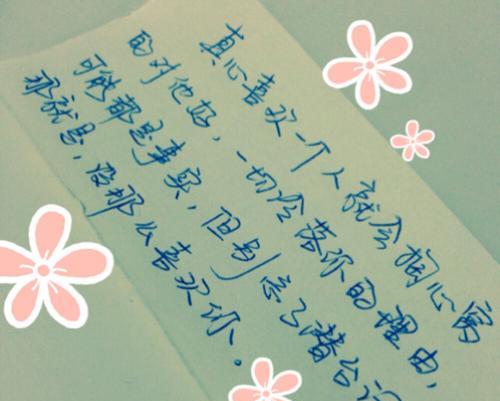 真心喜欢一个人就会掏心窝
的对他好，一切冷落你的理由，
可能都是事实，但别忘了潜台词
那就是，没那么喜欢你.